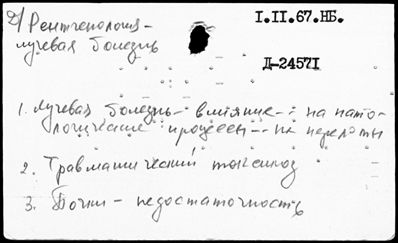 Д/ Рентгенология - I.II.67.НБ.
лучевая болезнь
Д-24571
1. Лучевая болезнь - влияние - : на пато-
логические процессы -- на переломы
2. Травматический токсикоз
3. Почки - недостаточность